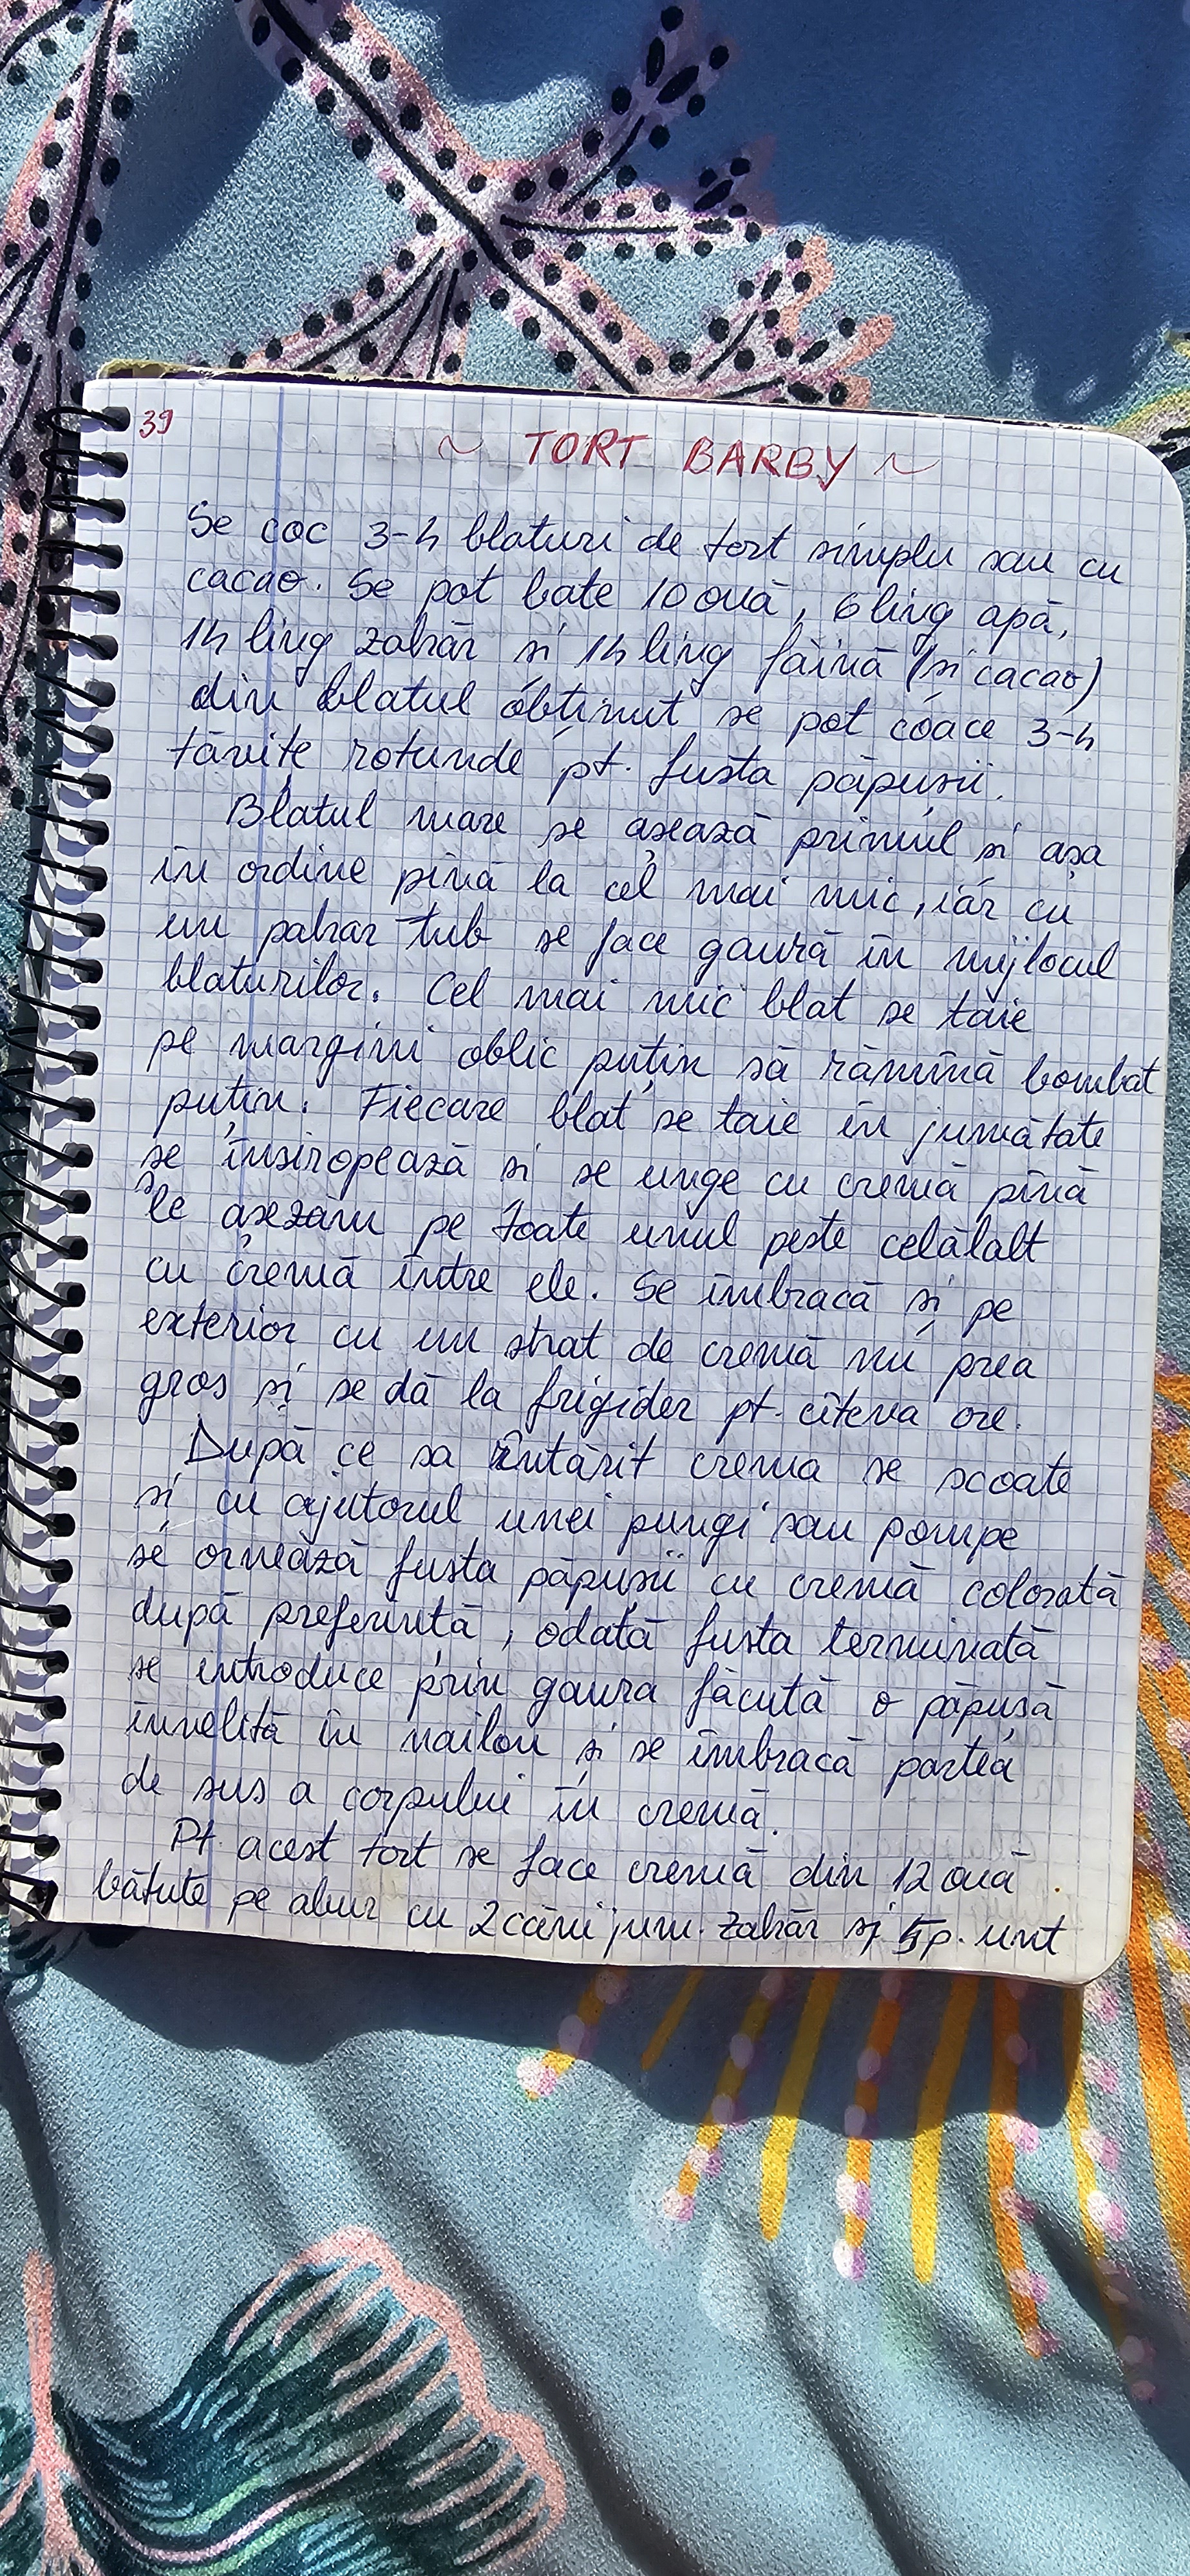 39
~ TORT BARBY ~
Se coc 3-4 blaturi de tort simplu sau cu
cacao. Se pot bate 10 ouă, 6 ling apă,
14 ling zahăr și 14 ling făină (și cacao)
din blatul obținut se pot coace 3-4
tăvițe rotunde pt. fusta păpușii.
Blatul mare se așează primul și așa
în ordine pînă la cel mai mic, iar cu
un pahar tub se face gaură în mijlocul
blaturilor. Cel mai mic blat se taie
pe margini oblic puțin să rămînă bombat
puțin. Fiecare blat se taie în jumătate
se însiropează și se unge cu cremă pînă
le așezăm pe toate unul peste celălalt
cu cremă între ele. Se îmbracă și pe
exterior cu un strat de cremă nu prea
gros și se dă la frigider pt. cîteva ore.
După ce sa întărit crema se scoate
și cu ajutorul unei pungi sau pompe
se ornează fusta păpușii cu cremă colorată
după preferință, odată fusta terminată
se introduce prin gaura făcută o păpușă
învelită în nailon și se îmbracă partea
de sus a corpului în cremă.
Pt. acest tort se face cremă din 12 ouă
bătute pe abur cu 2 căni jum. zahăr și 5p. unt